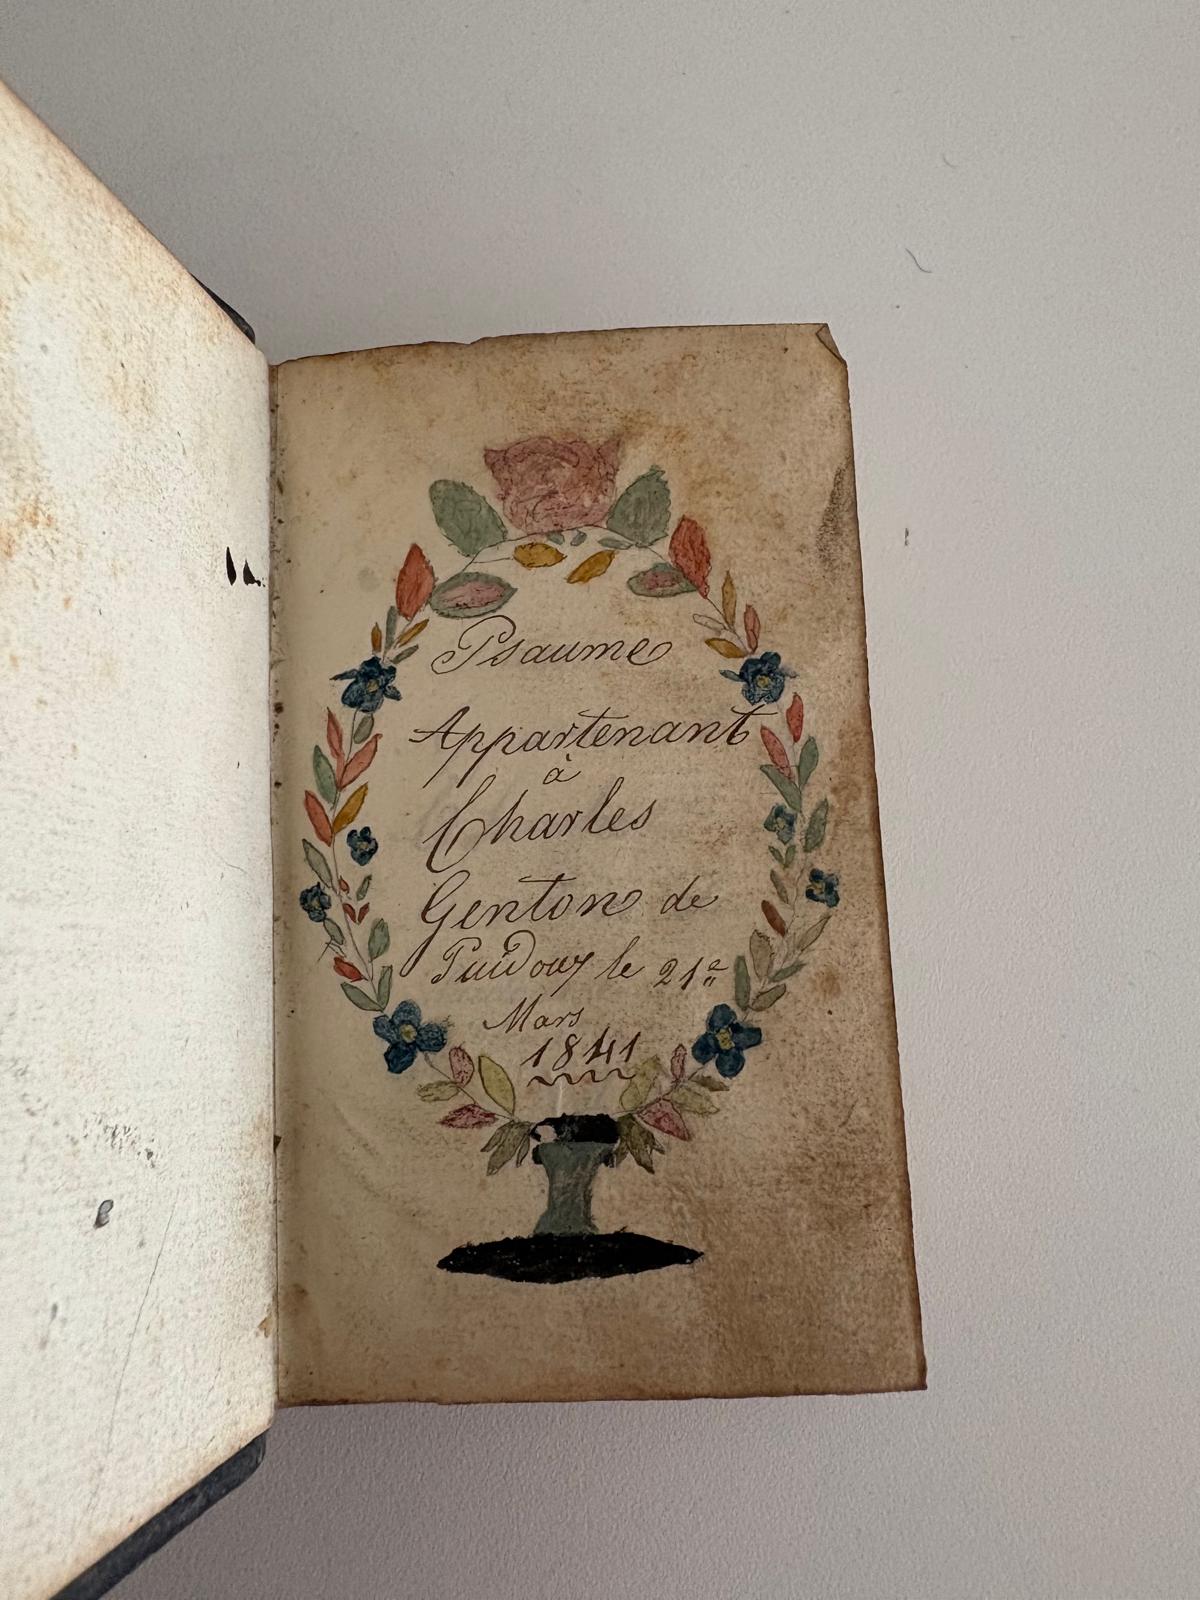 Psaume
Appartenant
à
Charles
Genton de
Puidoux le 21e
Mars
1841